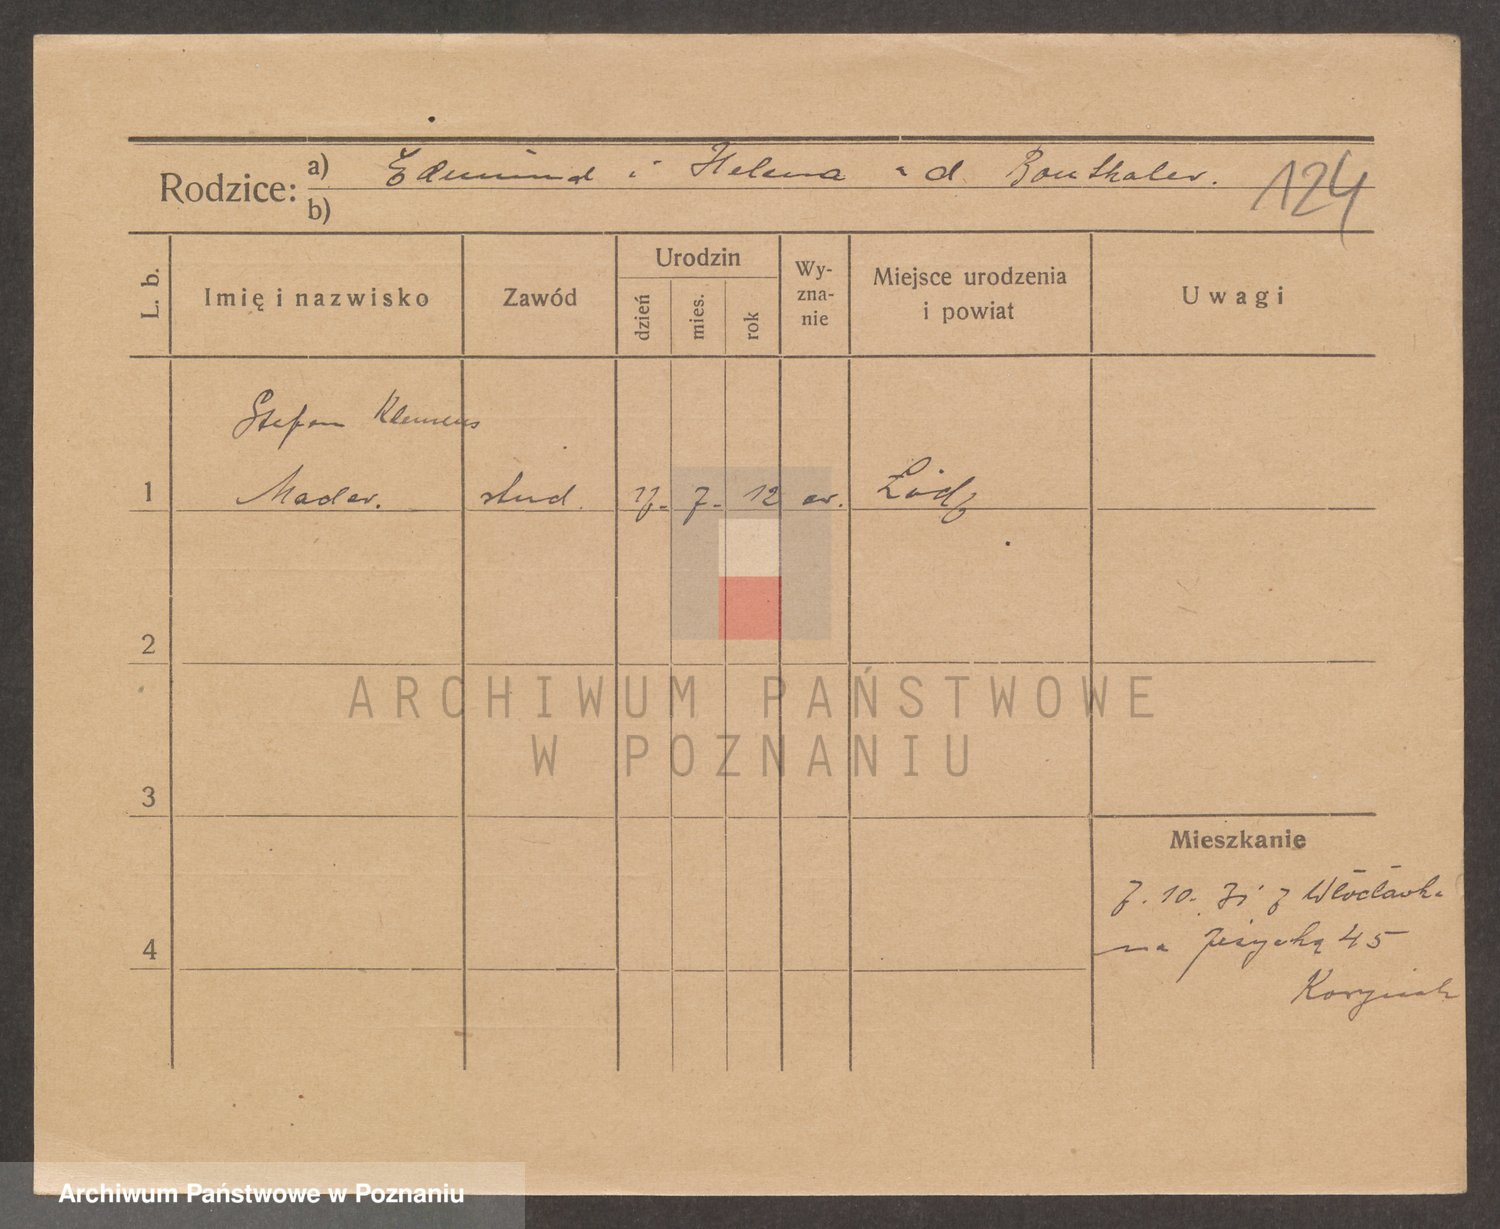 Rodzice: a) Edmund i Helena
124
b)
L. b.
Imię i nazwisko
Zawód
Urodzin
dzień
mies.
rok
Wy-
zna-
nie
Miejsce urodzenia
i powiat
Uwagi
Stefan Klemens
1 Mader. stud. 7. 12 ew. Łódź
2
3
4
Mieszkanie
7. 10. z Włocławka
na 45
ARCHIWUM PAŃSTWOWE
W POZNANIU
Archiwum Państwowe w Poznaniu